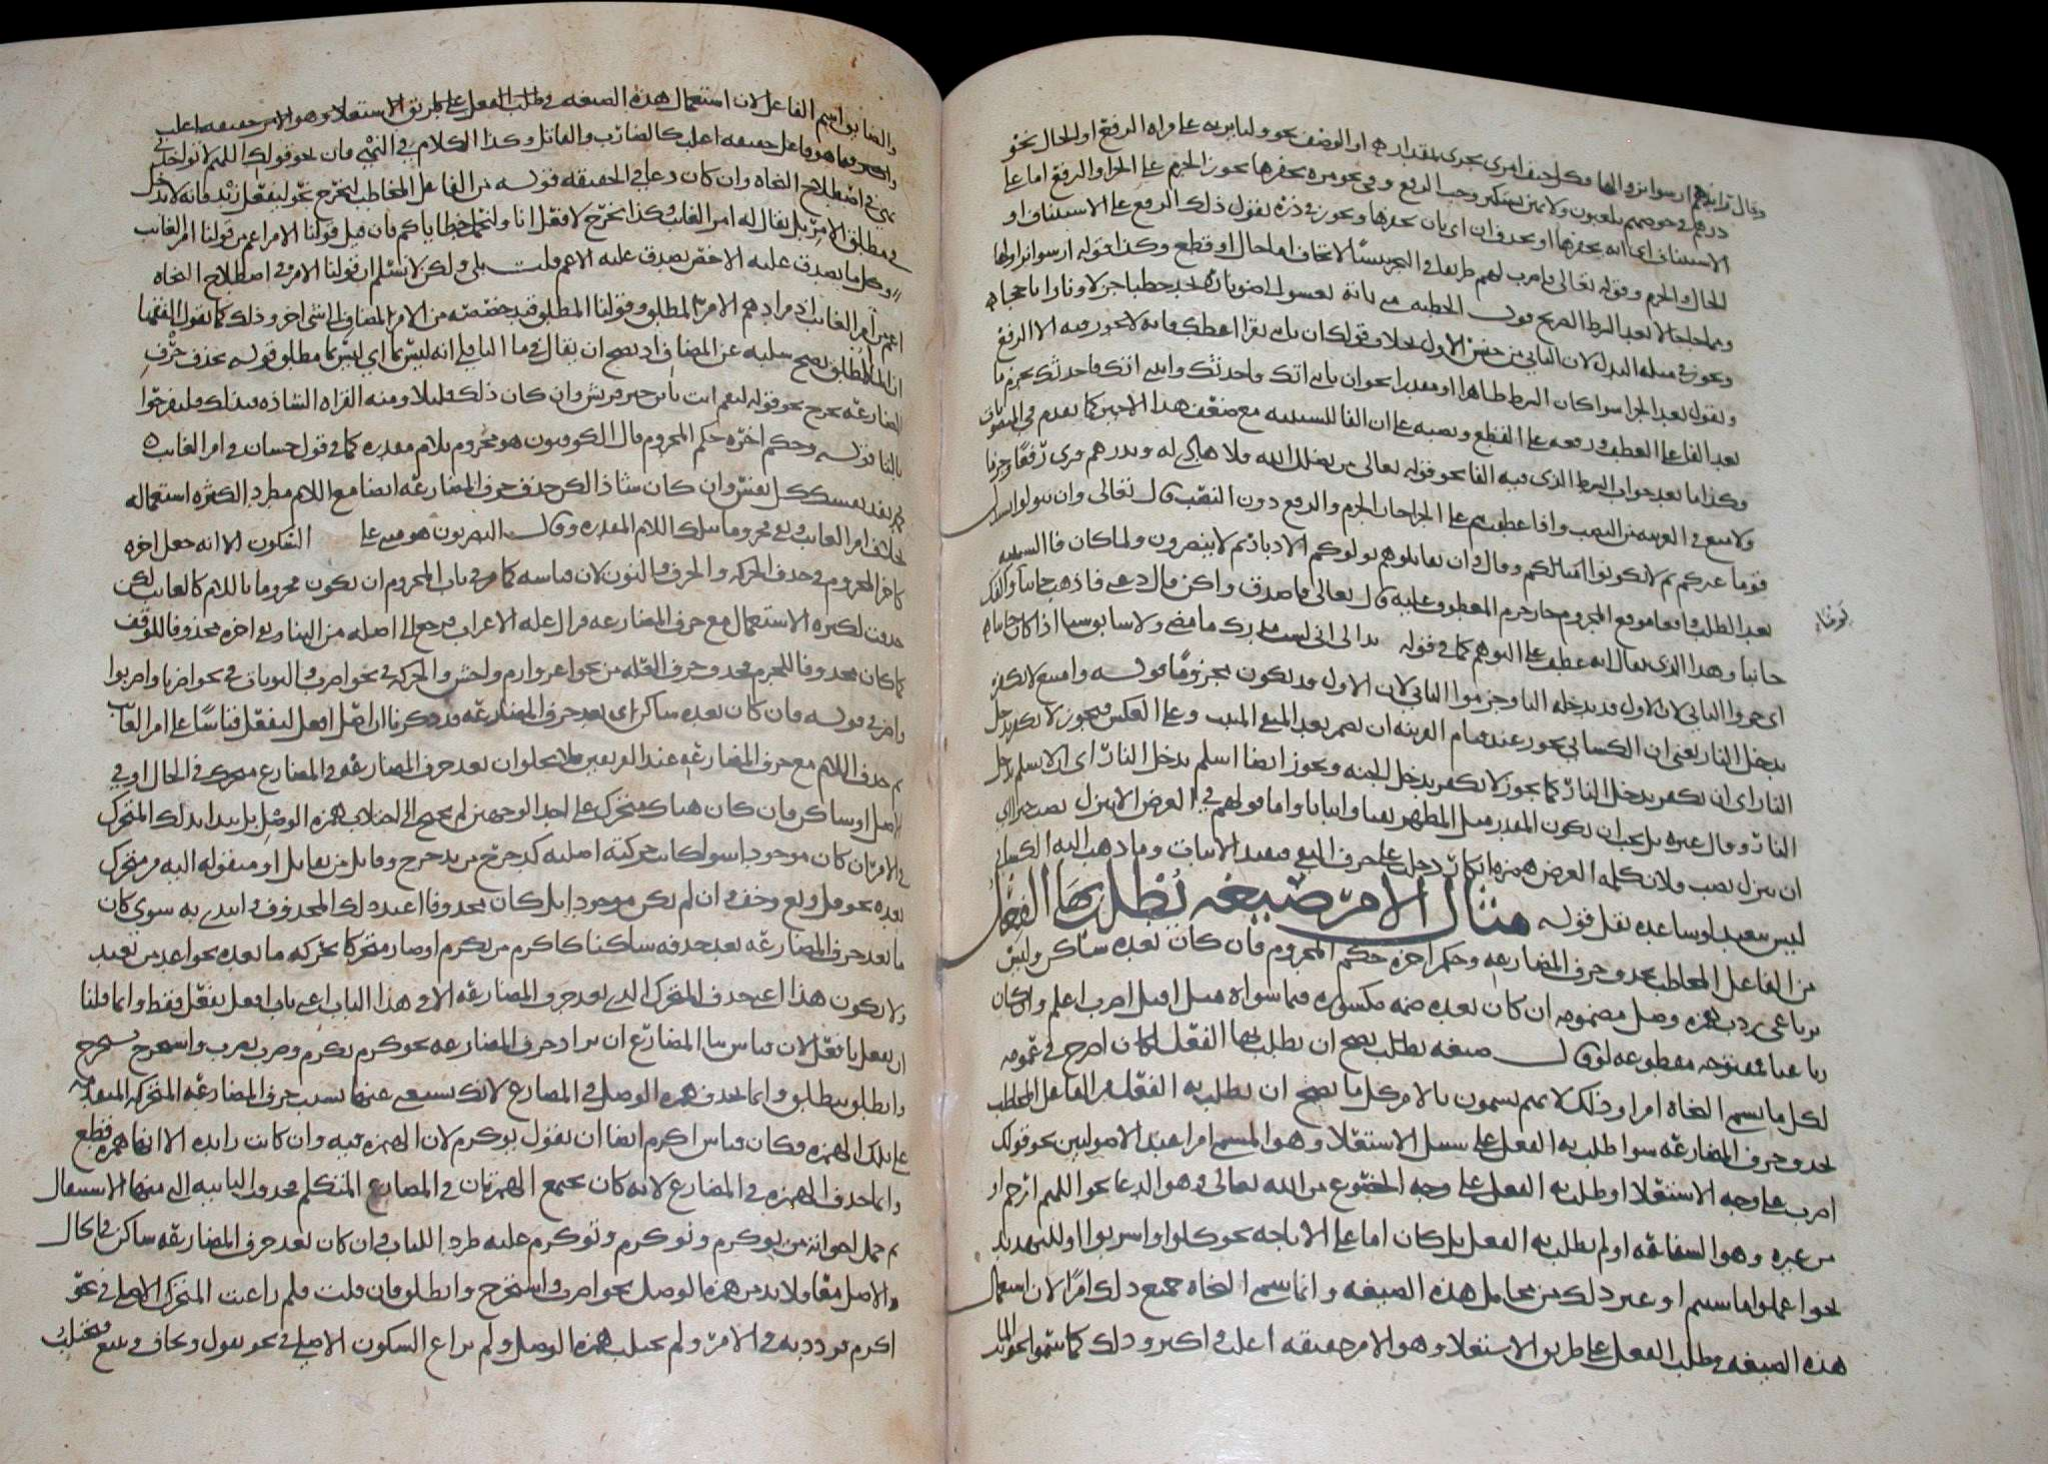 وقال رائدهم ارسوا نزاولها فكل حتف امرئ يجري بمقدار او الوصف نحو وليا يرثني على قراة الرفع او الحال نحو
ذرهم في خوضهم يلعبون ولا تمنن تستكثر وجب الرفع وفي نحو مره يحفرها يجوز الجزم على الجزا والرفع اما على
الاستيناف اي انه يحفرها او بحذف ان اي بان يحفرها ويجوز في ذره يقول ذلك الرفع على الاستيناف او
الحال والجزم وقوله تعالى فاضرب لهم طريقا في البحر يبسا لا تخاف اما حال او قطع وكذا قوله ارسوا نزاولها
ويجوز في مسله البدل لان الثاني من جنس الاول بخلاف قولك ان تاتني تقرا اعطك فانه لا يجوز فيه الا الرفع
وتقول بعد الجزا سوا كان الشرط ظاهرا او مقدرا نحو ان تاتني اتك واحدثك وايتني اتك فاحدثك بجزم ما
بعد الفا على العطف ورفعه على القطع ونصبه على ان الفا للسببيه مع ضعف هذا الاخير كما تقدم في المنصوبات
وكذا ما بعد جواب الشرط الذي فيه الفا نحو قوله تعالى من يضلل الله فلا هادي له ويذرهم قرئ رفعا وجزما
ولا منع في العربيه من النصب واذا عطفت بثم على الجزا جاز الجزم والرفع دون النصب قال تعالى وان تتولوا يستبدل
قوما غيركم ثم لا يكونوا امثالكم وقال وان يقاتلوكم يولوكم الادبار ثم لا ينصرون ولما كان فا السببيه
بعد الطلب واقعا موقع المجزوم جاز جزم المعطوف عليه قال تعالى فاصدق واكن وقال دعني فاذهب جانبا واكفك
جانبا وهذا الذي يقال انه عطف على التوهم كما في قوله بدا لي اني لست مدرك ما مضى ولا سابق شيا اذا كان جائيا
اي جروا الثاني لان الاول قد يدخله البا وجزموا الثاني لان الاول قد يكون مجزوما قوله وامتنع لا تكفر
تدخل النار يعني ان الكسائي يجوز عند قيام القرينه ان يضمر بعد المنفي المثبت وعلى العكس فيجوز لا تكفر تدخل
النار اي ان تكفر تدخل النار كما يجوز لا تكفر تدخل الجنه ويجوز ايضا اسلم تدخل النار اي ان لا تسلم تدخل
النار وقال غيره بل يجب ان يكون المقدر مثل المظهر نفيا واثباتا واما قولهم في العرض الا تنزل تصب خيرا اي
ان تنزل تصب فلان كلمه العرض همزه انكار دخل على حرف النفي فيفيد الاثبات وما ذهب اليه الكسائي
ليس ببعيد لو ساعده نقل قوله مثال الامر صيغه يطلب بها الفعل
من الفاعل المخاطب بحذف حرف المضارعه وحكم اخره حكم المجزوم فان كان بعده ساكن وليس
برباعي زدت همزه وصل مضمومه ان كان بعده ضمه مكسوره فيما سواه مثل اقتل اضرب اعلم وان كان
رباعيا فمفتوحه مقطوعه لو قال صيغه يطلب يصح ان يطلب بها الفعل لكان اصرح في عمومه
لكل ما يسميه النحاه امرا وذلك لانهم يسمون بالامر كل ما يصح ان يطلب به الفعل من الفاعل المخاطب
بحذف حرف المضارعه سوا طلب به الفعل على سبيل الاستعلا وهو المسمى امرا عند الاصوليين نحو قولك
اضرب على وجه الاستعلا او طلب به الفعل على وجه الخضوع من الله تعالى وهو الدعا نحو اللهم ارحم او
من غيره وهو الشفاعه او لم يطلب به الفعل بل كان اما على الاباحه نحو كلوا واشربوا او للتهديد
نحو اعملوا ما شيتم او غير ذلك من محامل هذه الصيغه وانما سمى النحاه جميع ذلك امرا لان استعمال
هذه الصيغه في طلب الفعل على طريق الاستعلا وهو الامر حقيقه اغلب واكثر وذلك كما سموا نحو المايت
والضايق اسم الفاعل لان استعمال هذه الصيغه في طلب الفعل على طريق الاستعلا وهو الامر حقيقه اغلب
واكثر فيما هو فاعل حقيقه اغلب كالضارب والقاتل وكذا الكلام في النهي فان نحو قولك اللهم لا تواخذني
نهي في اصطلاح النحاه وان كان دعا في الحقيقه قوله من الفاعل المخاطب ليخرج نحو ليفعل زيد فانه لا يدخل
في مطلق الامر بل يقال له امر الغائب وكذا يخرج لافعل انا ولنحمل خطاياكم فان قيل قولنا الامر اعم من قولنا امر الغائب
وكل ما يصدق عليه الاخص يصدق عليه الاعم قلت بلى ولكن لا نسلم ان قولنا الامر في اصطلاح النحاه
اعم من امر الغائب اذ مرادهم الامر المطلق وقولنا المطلق قيد خصصته من الامر المضاف الى شي اخر وذلك كما يقول الفقها
ان الما المطلق يصح سلبه عن المضاف اذ يصح ان يقال في ما الباقلي انه ليس بما اي ليس بما مطلق قوله بحذف حرف
المضارعه يخرج نحو قوله لتقم انت يا بن خير قريش وان كان ذلك قليلا ومنه القراه الشاذه فبذلك فلتفرحوا
بالتا قوله وحكم اخره حكم المجزوم قال الكوفيون هو مجزوم بلام مقدره كما في قول حسان في امر الغائب
محمد تفد نفسك كل نفس وان كان شاذا لكن حذف حرف المضارعه ايضا مع اللام مطرد لكثره استعماله
بخلاف امر الغائب وبقي مجزوما بتلك اللام المقدره وقال البصريون هو مبني على السكون الا انه جعل اخره
كاخر المجزوم في حذف الحركه والحرف والنون لان قياسه كما مر في باب المجزوم ان يكون مجزوما باللام كالغائب لكن
حذفت لكثره الاستعمال مع حرف المضارعه فزال عله الاعراب فرجع الى اصله من البنا وبقي اخره محذوفا للوقف
كما كان محذوفا للجزم فحذف حرف العله من نحو اغز وارم واخش والحركه في نحو اضرب والنون في نحو اضربا واضربوا
واضربي قوله فان كان بعده ساكن اي بعد حرف المضارعه قد ذكرنا ان اصل افعل لتفعل قياسا على امر الغائب
ثم حذف اللام مع حرف المضارعه عند الفريقين فلا يخلو ان بعد حرف المضارعه في المضارع متحرك في الحال او في
الاصل او ساكن فان كان هناك متحرك على احد الوجهين لم يحتج الى اجتلاب همزه الوصل بل يبدا بذلك المتحرك
في الامر ان كان موجودا سوا كانت حركته اصليه كدحرج من يدحرج وقاتل من يقاتل او منقوله اليه من متحرك
بعده نحو قل وبع وخف وان لم يكن موجودا بل كان محذوفا اعيد ذلك المحذوف وابتدئ به سوى كان
ما بعد حرف المضارعه بعد حذفه ساكنا كاكرم من يكرم او صار متحركا بحركه ما بعده نحو اعد من تعيد
ولا يكون هذا اعني حذف المتحرك الذي بعد حرف المضارعه الا في هذا الباب اعني باب افعل يفعل فقط وانما قلنا
ان يفعل يافعل لان قياس بنا المضارع ان يزاد حرف المضارعه نحو كرم يكرم وضرب يضرب واستخرج يستخرج
وانطلق ينطلق وانما تحذف همزه الوصل في المضارع لانك تستغني عنها بسبب حرف المضارعه المتحركه المتقدمه
على تلك الهمزه فكان قياس اكرم ايضا ان يقول يوكرم لان الهمزه فيه وان كانت زايده الا انها همزه قطع
وانما حذف الهمزه في المضارع لانه كان يجتمع الهمزتان في المضارع المتكلم فحذف الثانيه التي منها الاستثقال
ثم حمل اخواته من يوكرم ونوكرم وتوكرم عليه طردا للباب وان كان بعد حرف المضارعه ساكن في الحال
والاصل معا فلا بد من همزه الوصل نحو اضرب واستخرج وانطلق فان قلت فلم راعيت المتحرك الاصلي في نحو
اكرم فرددته في الامر ولم تجتلب همزه الوصل ولم تراع السكون الاصلي في نحو تقول وتخاف وتبيع فتجتلب